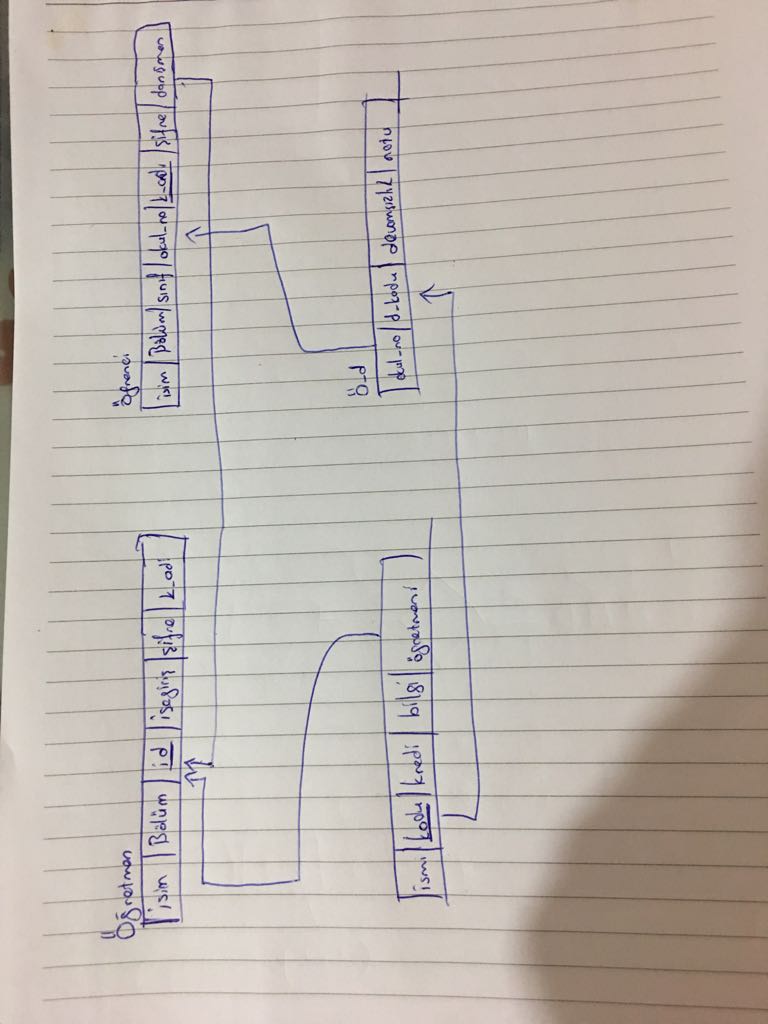 Öğretmen
isim | Bölüm | id | işegiriş | şifre | k_adi
Öğrenci
isim | Bölüm | sınıf | okul_no | k_adi | şifre | danışman
ismi | kodu | kredi | bilgi | öğretmeni
Ö_d
okul_no | d_kodu | devamsızlık | notu